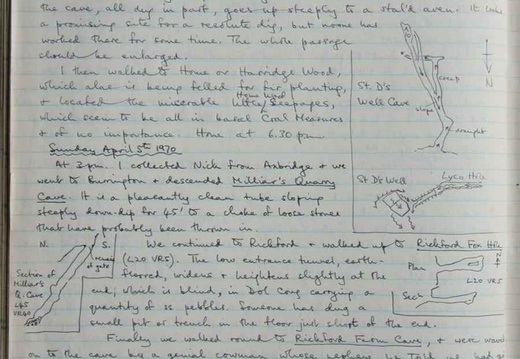 the cave, all dug in part, goes up steeply to a stal'd aven. It looks
a promising site for a resolute dig, but noone has
worked there for some time. The whole passage
should be enlarged.
I then walked to Home or Harridge Wood,
which also is being felled for fir planting,
Home Wood
& located the miserable little seepages,
which seem to be all in basal Coal Measures
& of no importance. Home at 6.30 pm
Sunday April 5th 1970
At 2 pm. I collected Nick from Axbridge & we
went to Burrington & descended Milliar's Quarry
Cave. It is a pleasantly clean tube sloping
steeply down-dip for 45' to a choke of loose stones
that have probably been thrown in.
We continued to Rickford & walked up to Rickford Fox Hole
(L20 VR5). The low entrance tunnel, earth-
floored, widens & heightens slightly at the
end, which is blind, in Dol Cong carrying a
quantity of ss pebbles. Someone has dug a
small pit or trench in the floor just short of the end.
Finally we walked round to Rickford Farm Cave, & were
on to the cave by a genial cowman whose
St. D's
Well Cave
creep
slope
draught
N
St D's Well
Lyca Hill
N.
S.
remains
of gate
Section of
Milliar's
Q. Cave
L45
VR40
Plan
L20 VR5
Sect
N